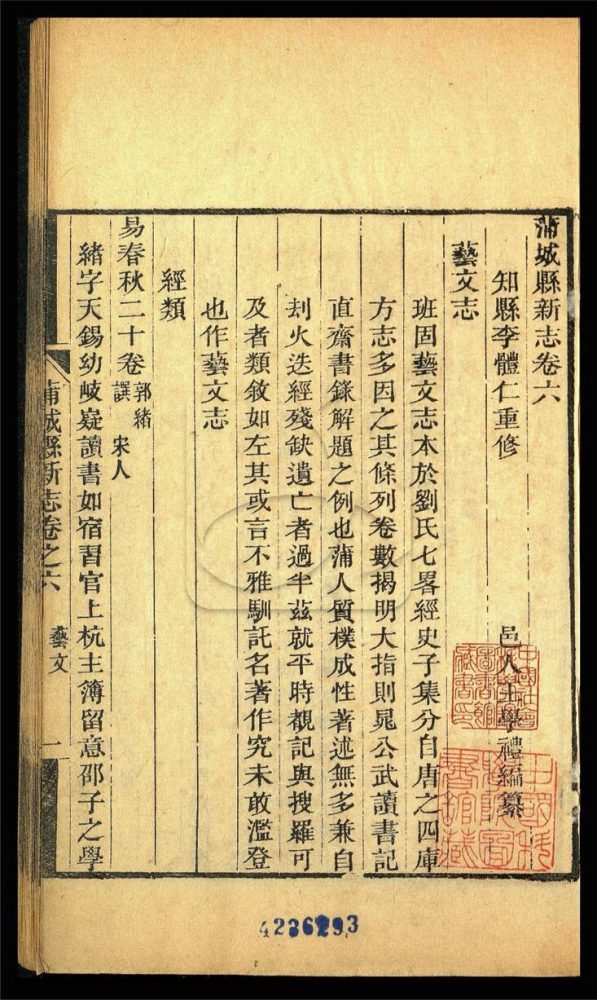 蒲城縣新志卷六
知縣李體仁重修 邑人王學禮編纂
藝文志
班固藝文志本於劉氏七畧經史子集分自唐之四庫
方志多因之其條列卷數揭明大指則晁公武讀書記
直齋書錄解題之例也蒲人質樸成性著述無多兼自
刦火迭經殘缺遺亡者過半茲就平時覩記與搜羅可
及者類敘如左其或言不雅馴託名著作究未敢濫登
也作藝文志
經類
易春秋二十卷 郭緒譔 宋人
緒字天錫幼岐嶷讀書如宿習官上杭主簿留意邵子之學
蒲城縣新志卷之六 藝文 一
4236293